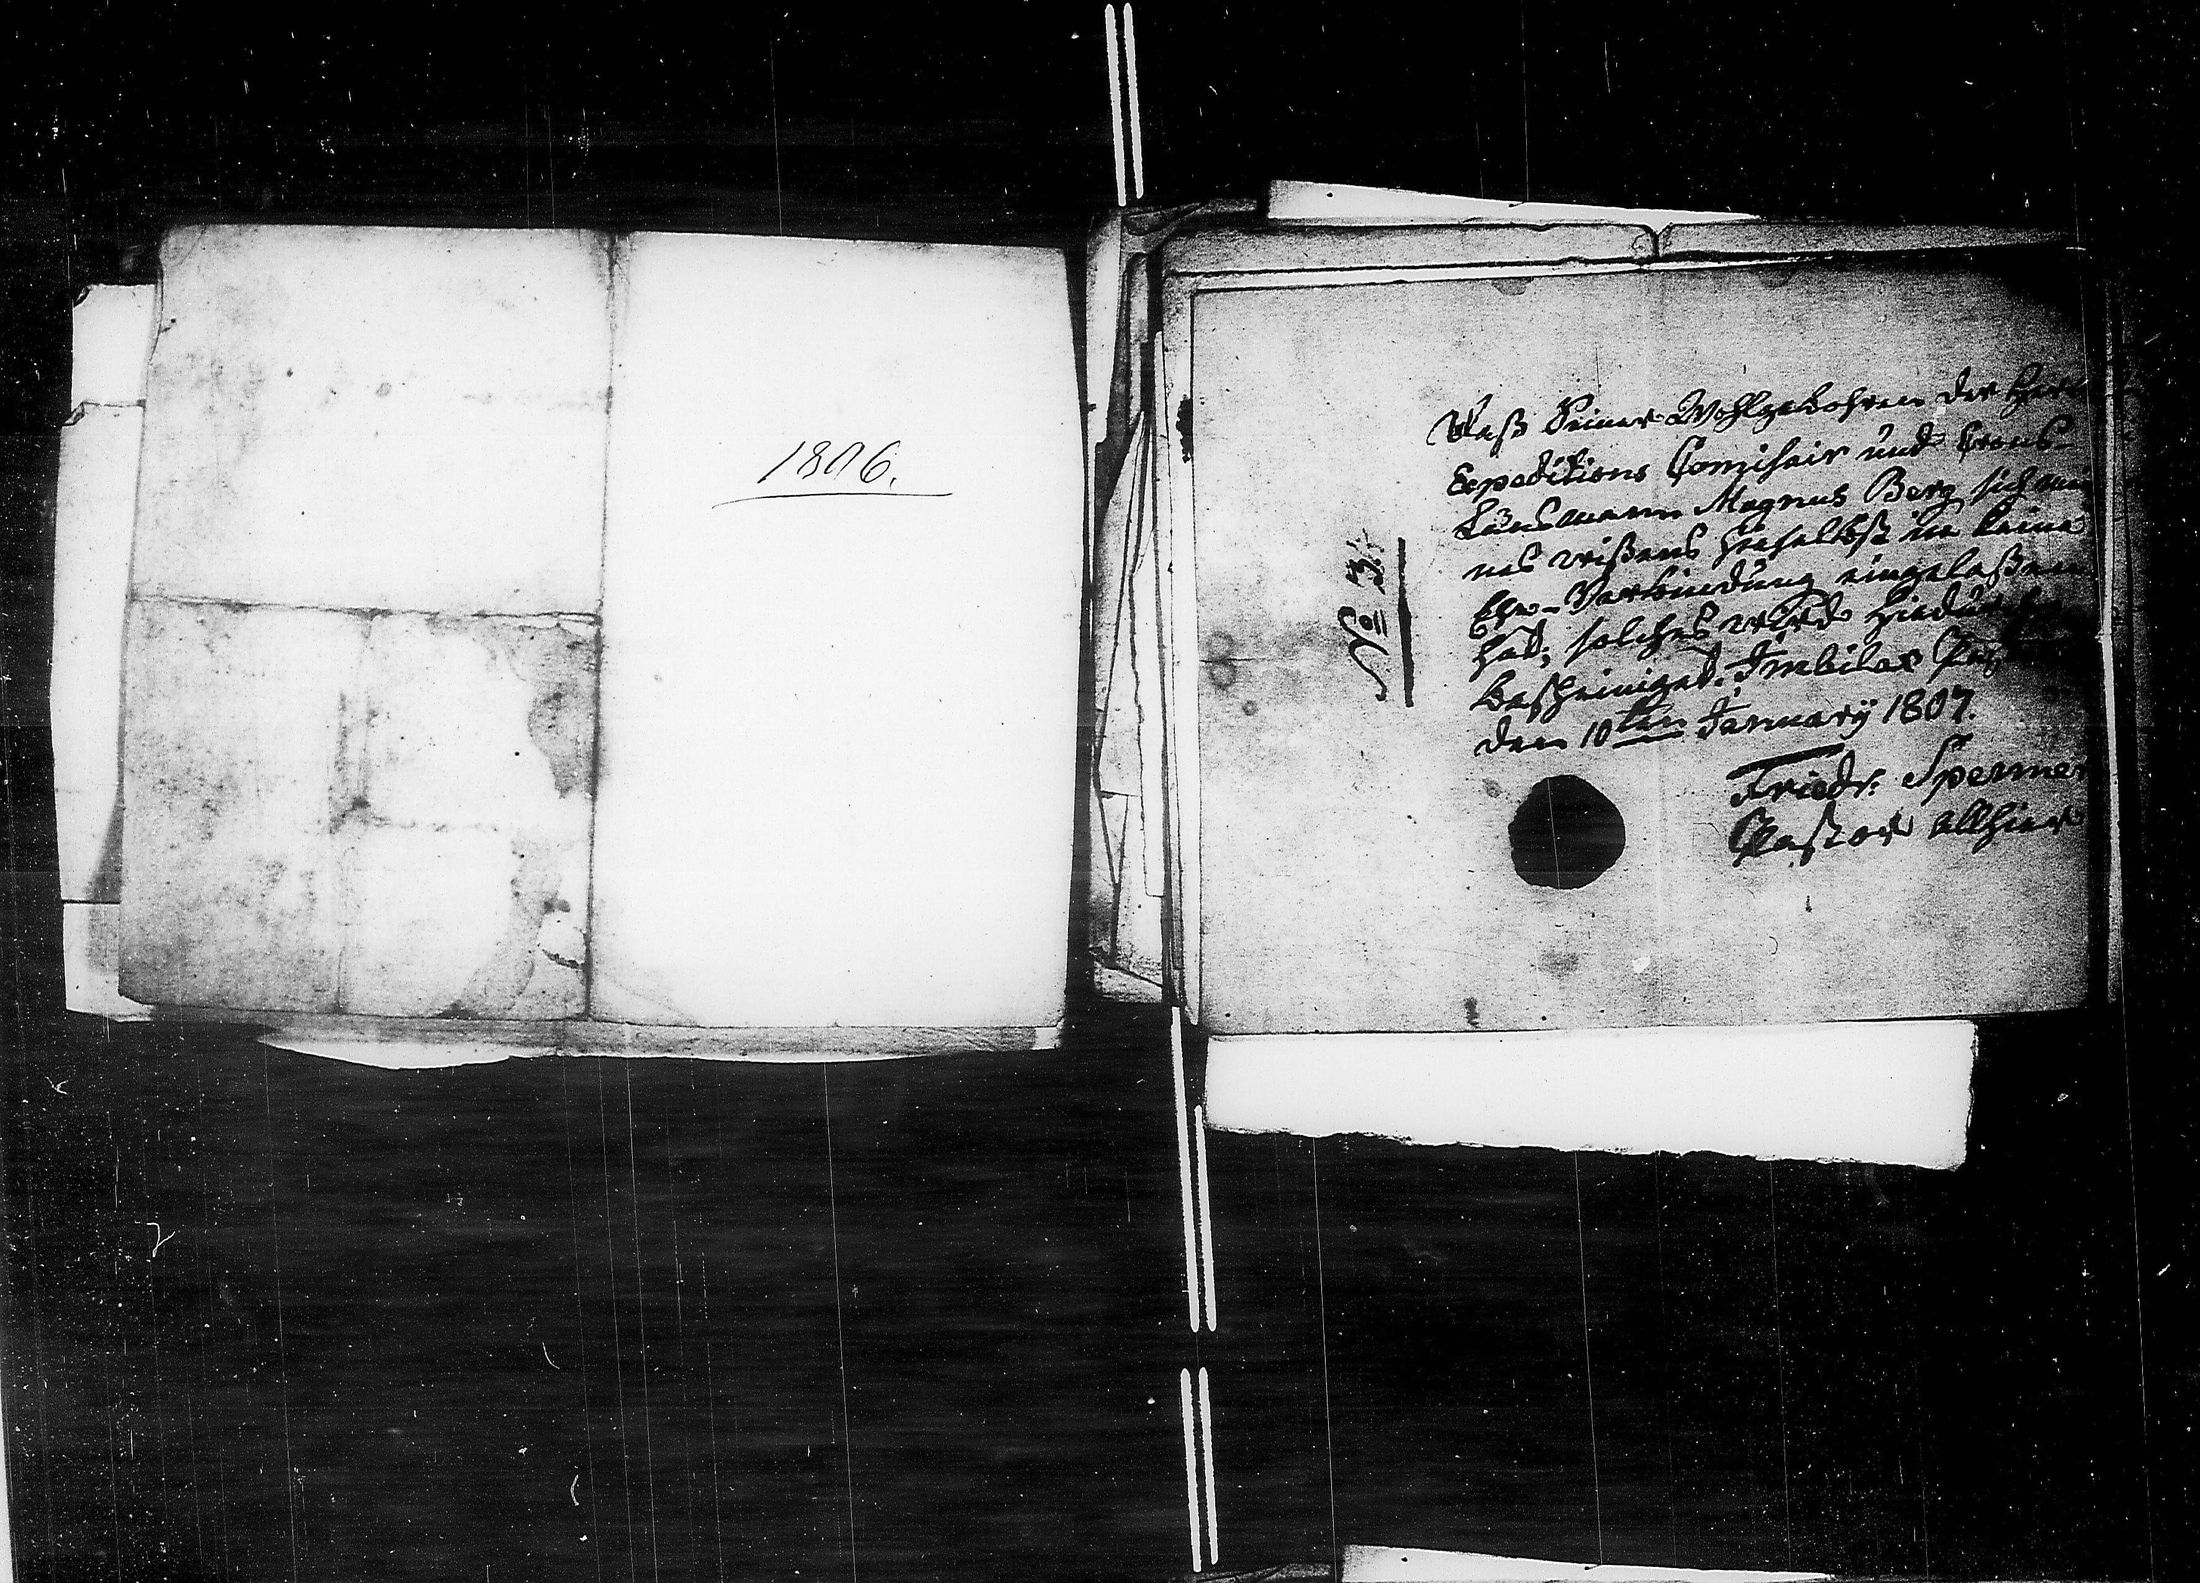 1806.
No 3.
Daß Seiner Wohlgebohren der Herr
Expeditions Comissair und Crons-
Länsmann Magnus Berg sich mei
nes wißens hieselbst in keine
Ehe-Verbindung eingelaßen
hat; solches wird hiedurch
bescheiniget. Imbilax
den 10ten January 1807.
Friedr: Spenner
Pastor allhier